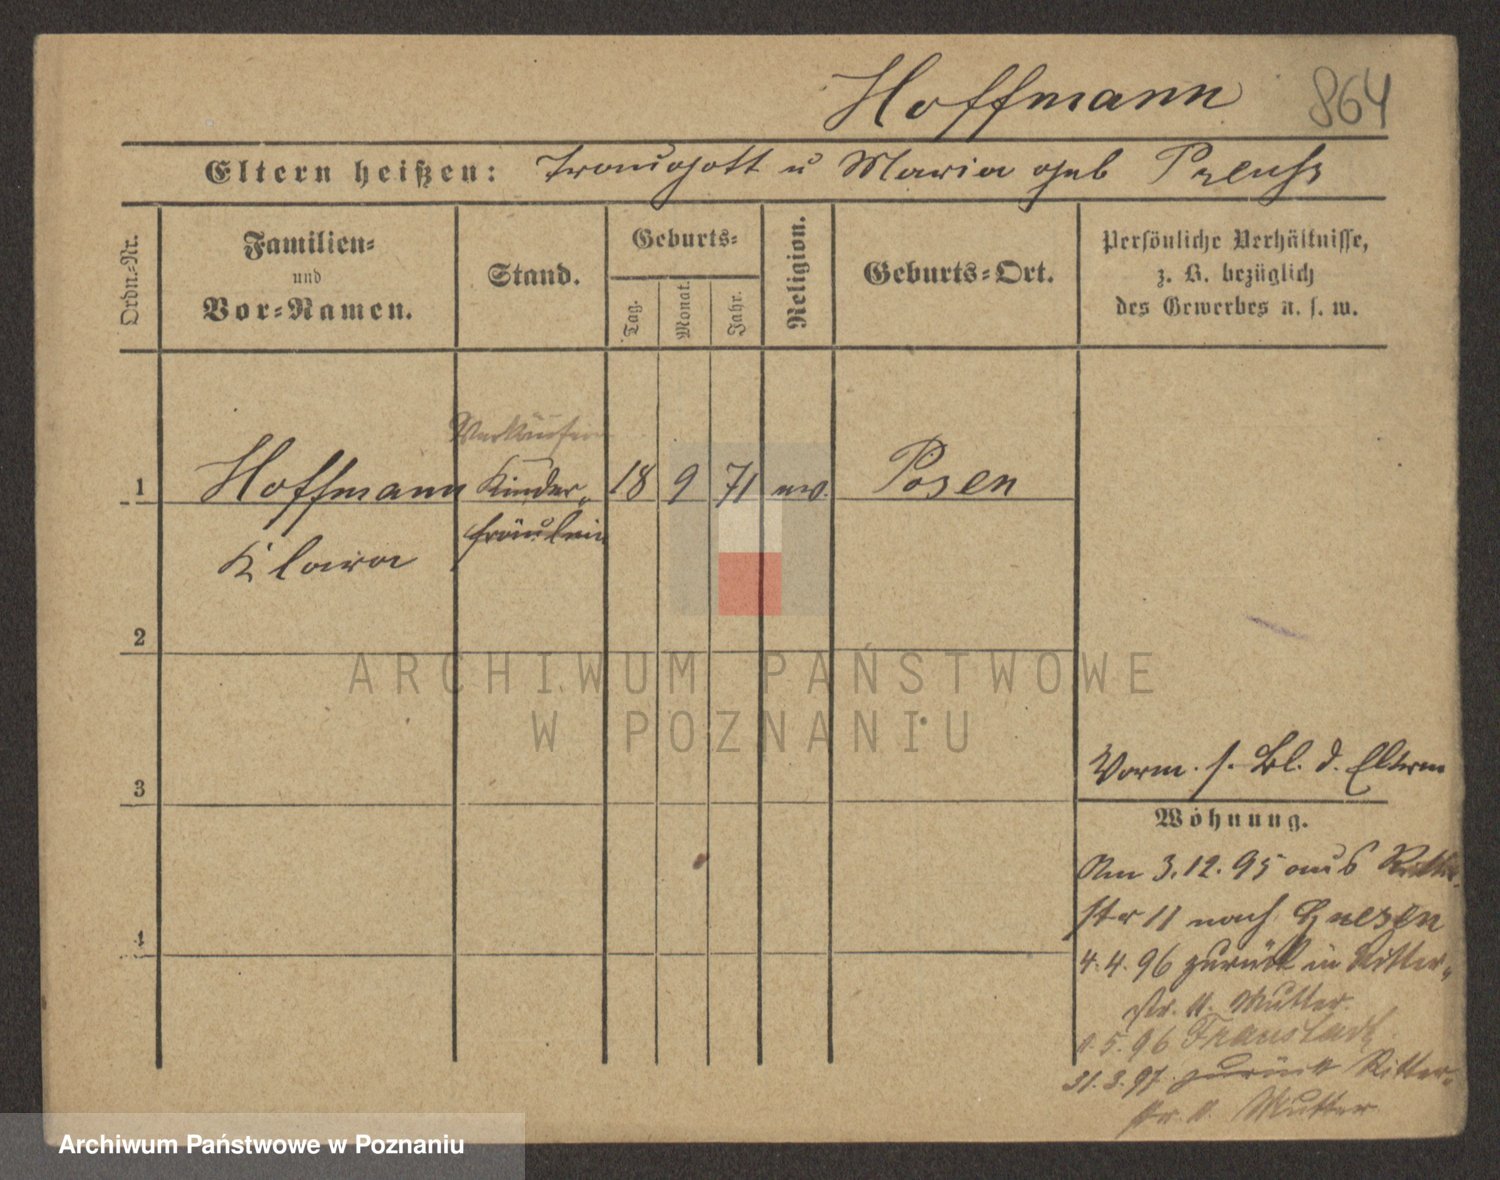 Hoffmann 864
Eltern heißen: Traugott u Maria geb Preuß
Ordn.-Nr.
Familien-
und
Vor-Namen.
Stand.
Geburts-
Tag.
Monat.
Jahr.
Religion.
Geburts-Ort.
Persönliche Verhältnisse,
z. B. bezüglich
des Gewerbes u. s. w.
Verkäuferin
1 Hoffmann Kinder- 18 9 71 ev. Posen
fräulein
Klara
2
ARCHIWUM PAŃSTWOWE
W POZNANIU
Vorm. s. Bl. d. Eltern
3
Wohnung.
Am 3.12.95 aus Ritter-
str 11 nach Gnesen
4
4.4.96 zurück in Ritter-
str. 11. Mutter.
5.96 Fraustadt
31.3.97 zurück Ritter-
str. 11. Mutter
Archiwum Państwowe w Poznaniu